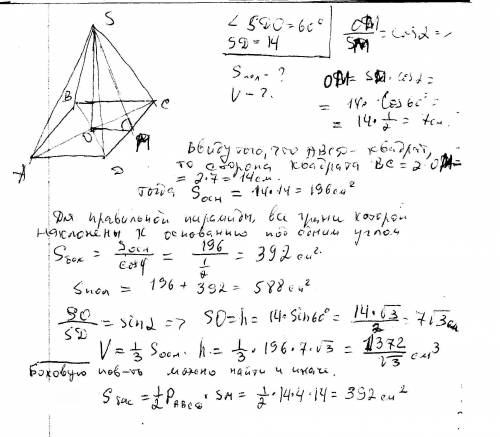 S
B
C
O
M
A
D
∠ SDO = 60°
SD = 14
Sпол - ?
V - ?
OM/SM = cos α =
OM = SM · cos α =
= 14 · cos 60° =
= 14 · 1/2 = 7 см.
Ввиду того, что ABCD - квадрат,
то сторона квадрата BC = 2·OM =
= 2·7 = 14 см.
тогда Sосн = 14·14 = 196 см²
Для правильной пирамиды, все грани которой
наклонены к основанию под одним углом
Sбок = Sосн/cos φ = 196/(1/2) = 392 см².
Sпол = 196 + 392 = 588 см²
SO/SD = sin α => SO = h = 14·sin 60° = 14·√3/2 = 7√3 см
V = 1/3 Sосн · h = 1/3 · 196 · 7 · √3 = 1372/√3 см³
Боковую пов-ть можно найти и иначе.
Sбок = 1/2 PABCD · SM = 1/2 · 14·4·14 = 392 см²